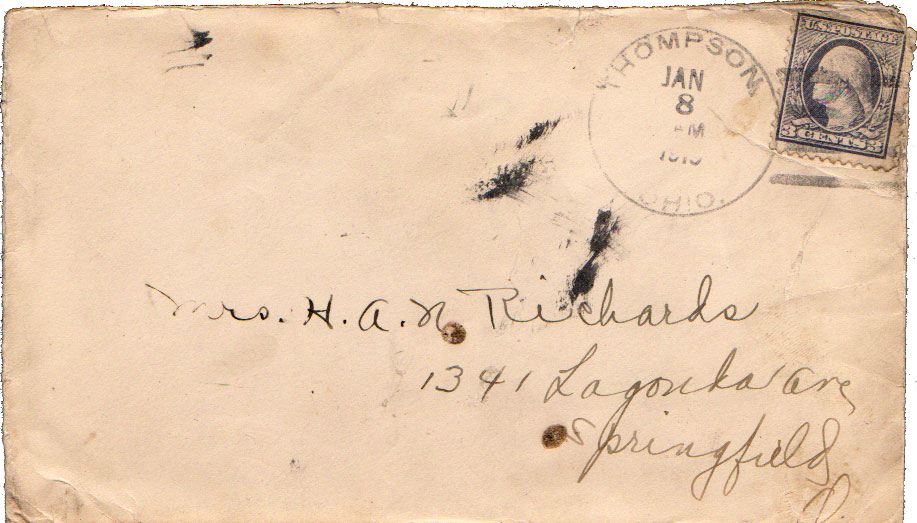 THOMPSON,
JAN
8
AM
1919
OHIO.
U.S. POSTAGE
3 CENTS 3
Mrs. H. A. N. Richards
1341 Lagonda Ave,
Springfield,
O.